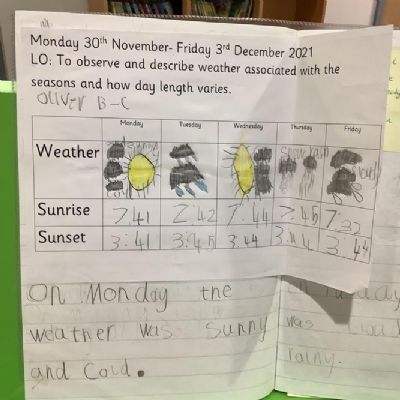 Monday 30th November- Friday 3rd December 2021
LO: To observe and describe weather associated with the
seasons and how day length varies.
OLIVER B-C
Monday Tuesday Wednesday Thursday Friday
Weather
Sunrise 7.41 7.42 7.44 7.45 7:32
Sunset 3:41 3:45 3.44 3.44 3.44
On Monday the
weather was sunny
and Cold.
was
rainy.